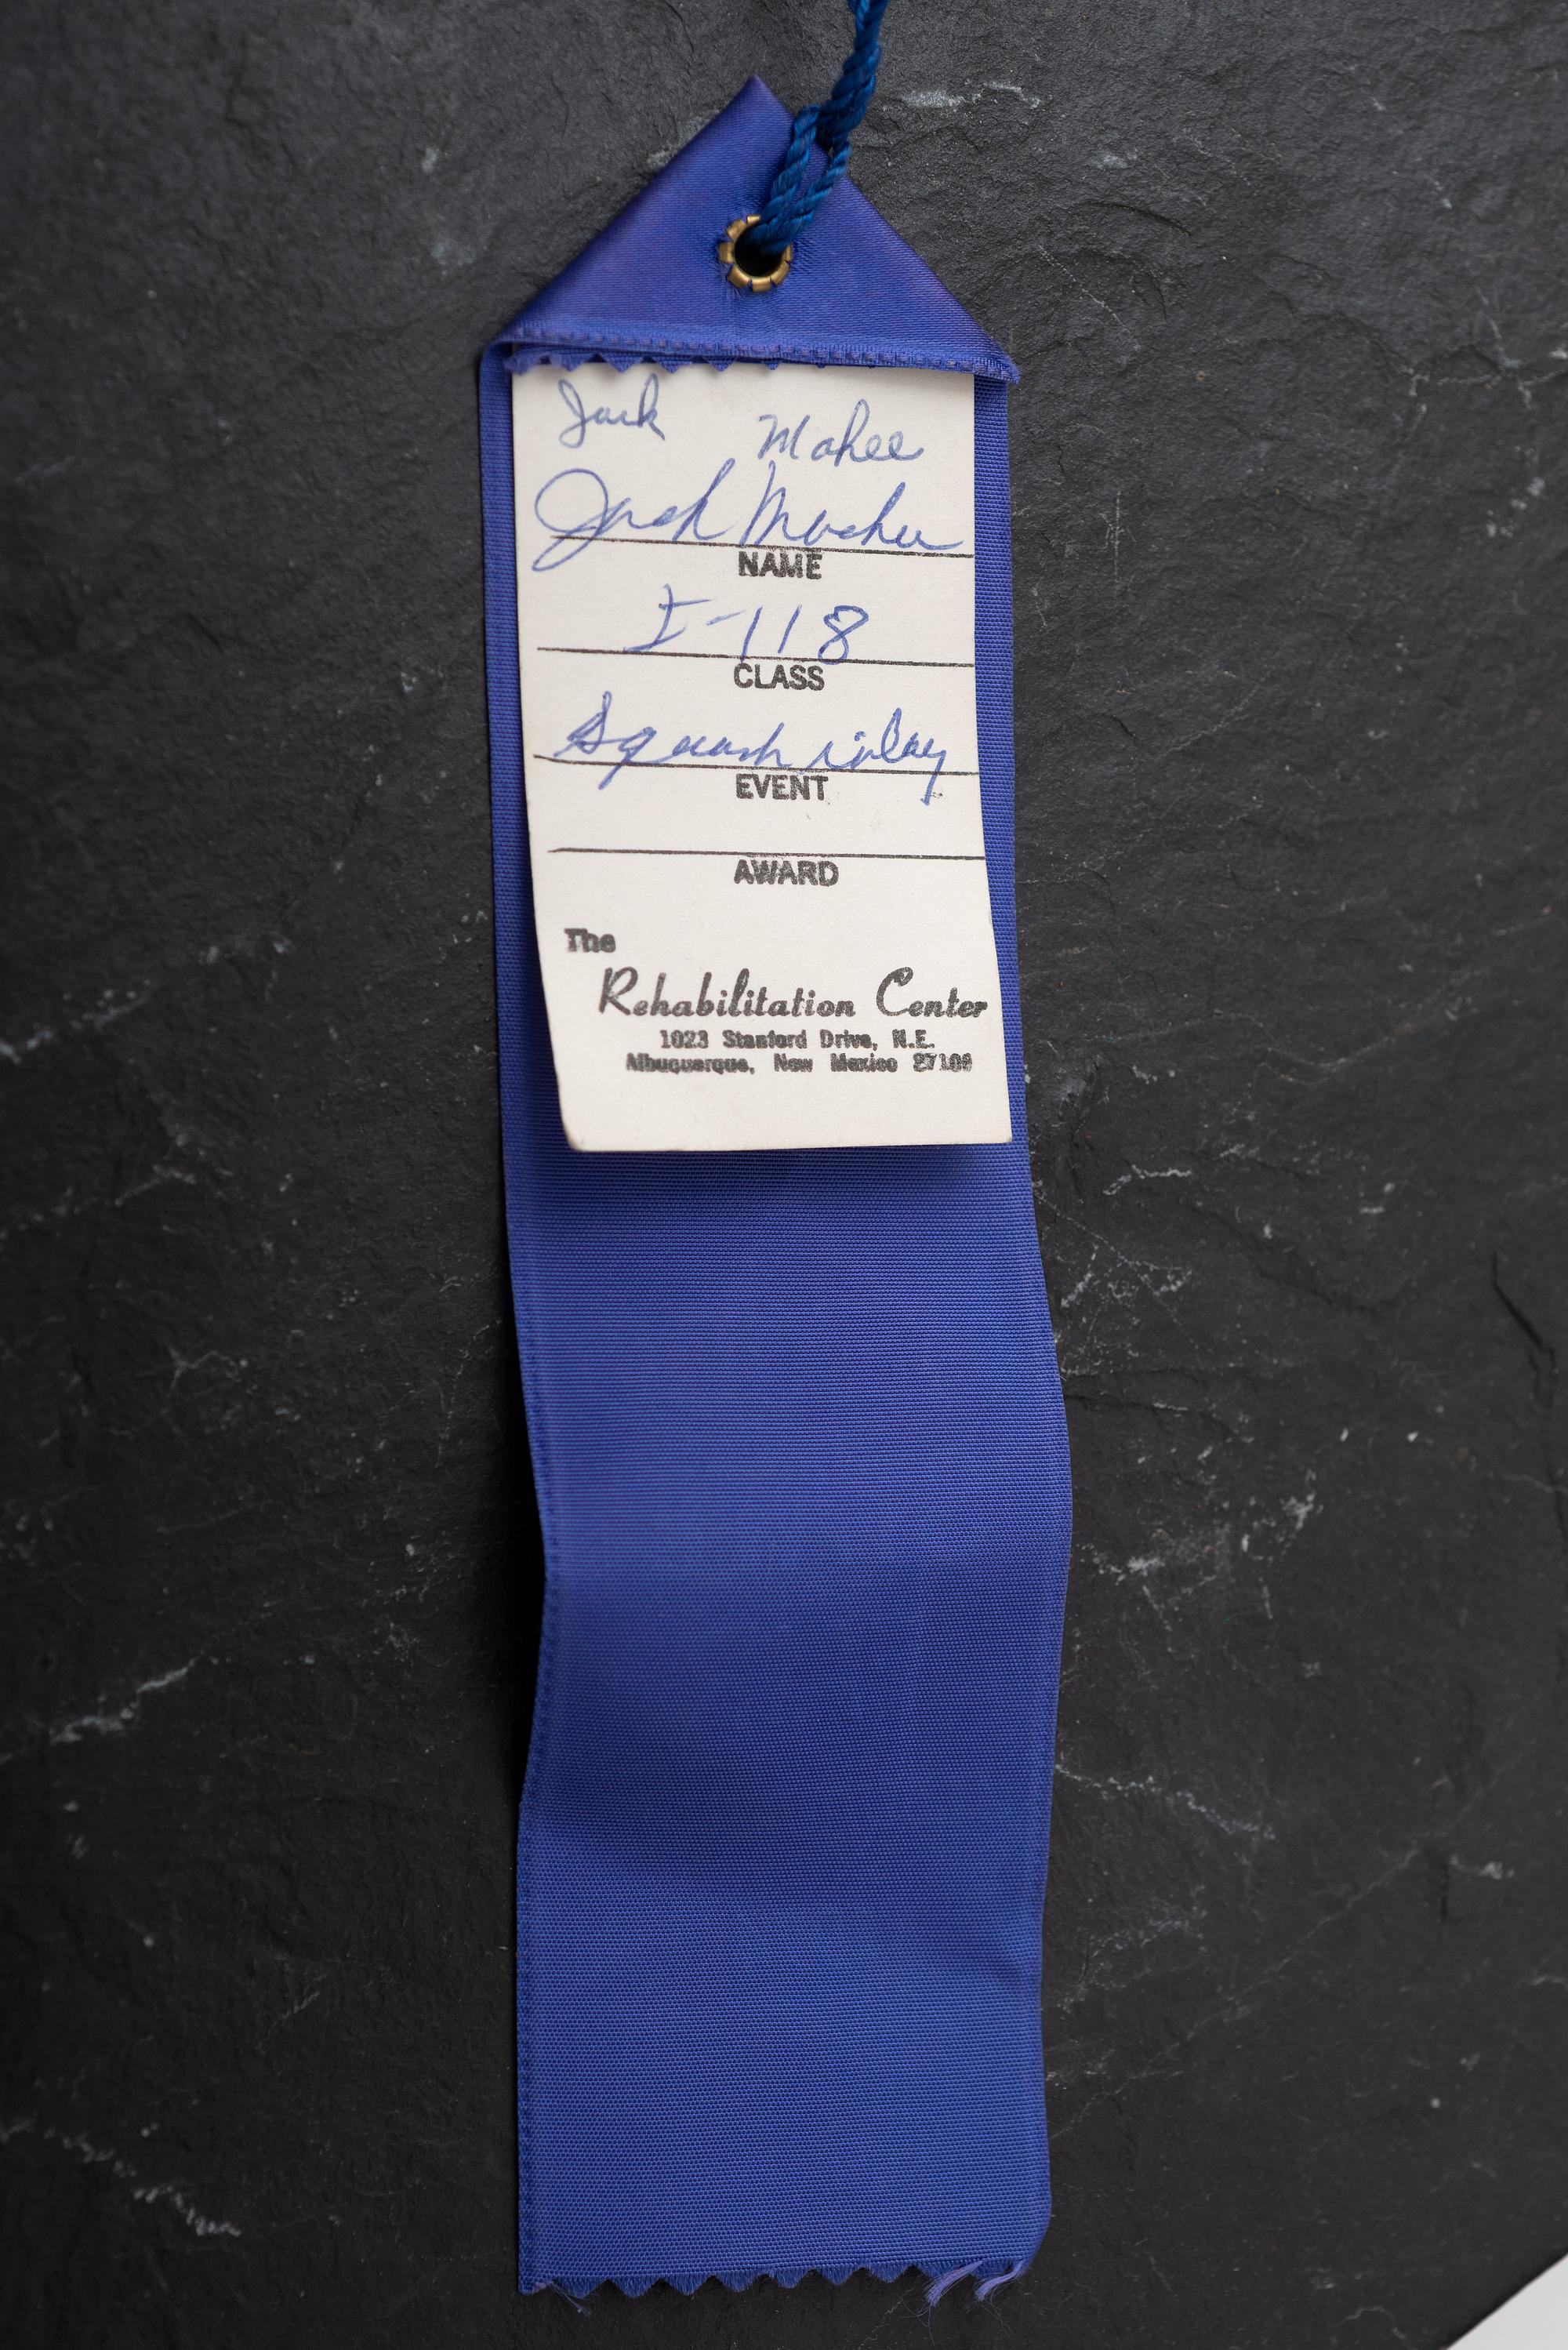 Jack Mahee
Jack Mackee
NAME
I-118
CLASS
Squash inlay
EVENT
AWARD
The
Rehabilitation Center
1023 Stanford Drive, N.E.
Albuquerque, New Mexico